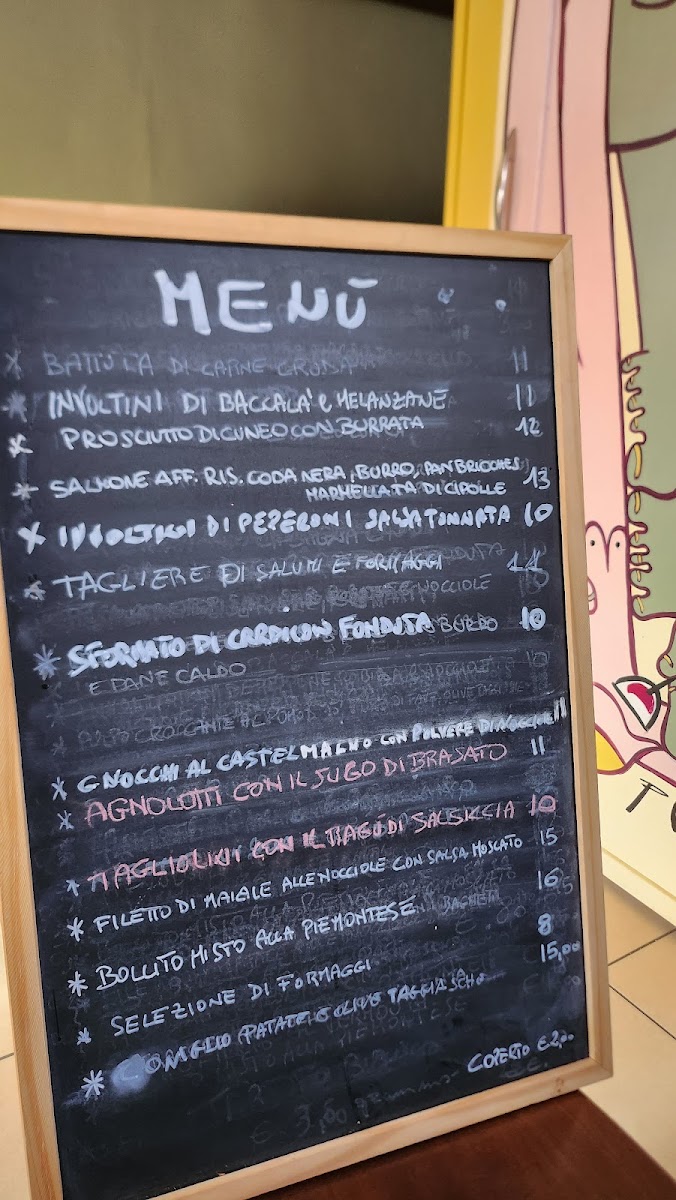 MENÙ
* BATTUTA DI CARNE CRUDA 11
* INVOLTINI DI BACCALA' e MELANZANE 11
* PROSCIUTTO DI CUNEO CON BURRATA 12
* SALMONE AFF. RIS. CODA NERA, BURRO, PAN BRIOCHES 13
MARMELLATA DI CIPOLLE
* INVOLTINI DI PEPERONI SALSA TONNATA 10
* TAGLIERE DI SALUMI E FORMAGGI 11
NOCCIOLE
* SFORMATO DI CARDI CON FONDUTA BURRO 10
E PANE CALDO
* GNOCCHI AL CASTELMAGNO CON POLVERE DI NOCCIOLE 11
* AGNOLOTTI CON IL SUGO DI BRASATO 11
* TAGLIOLINI CON IL RAGÙ DI SALSICCIA 10
* FILETTO DI MAIALE ALLE NOCCIOLE CON SALSA MOSCATO 15
* BOLLITO MISTO ALLA PIEMONTESE 16
* SELEZIONE DI FORMAGGI 8
* CONIGLIO PATATE E OLIVE TAGGIASCHE 15,00
COPERTO € 2,00